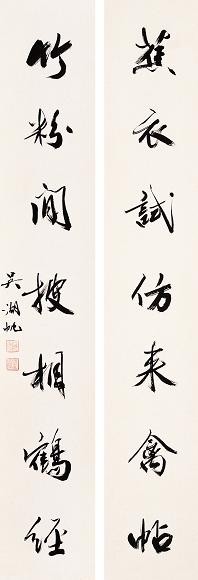 蕉衣試仿來禽帖
竹粉閒搜相鶴經
吳湖帆